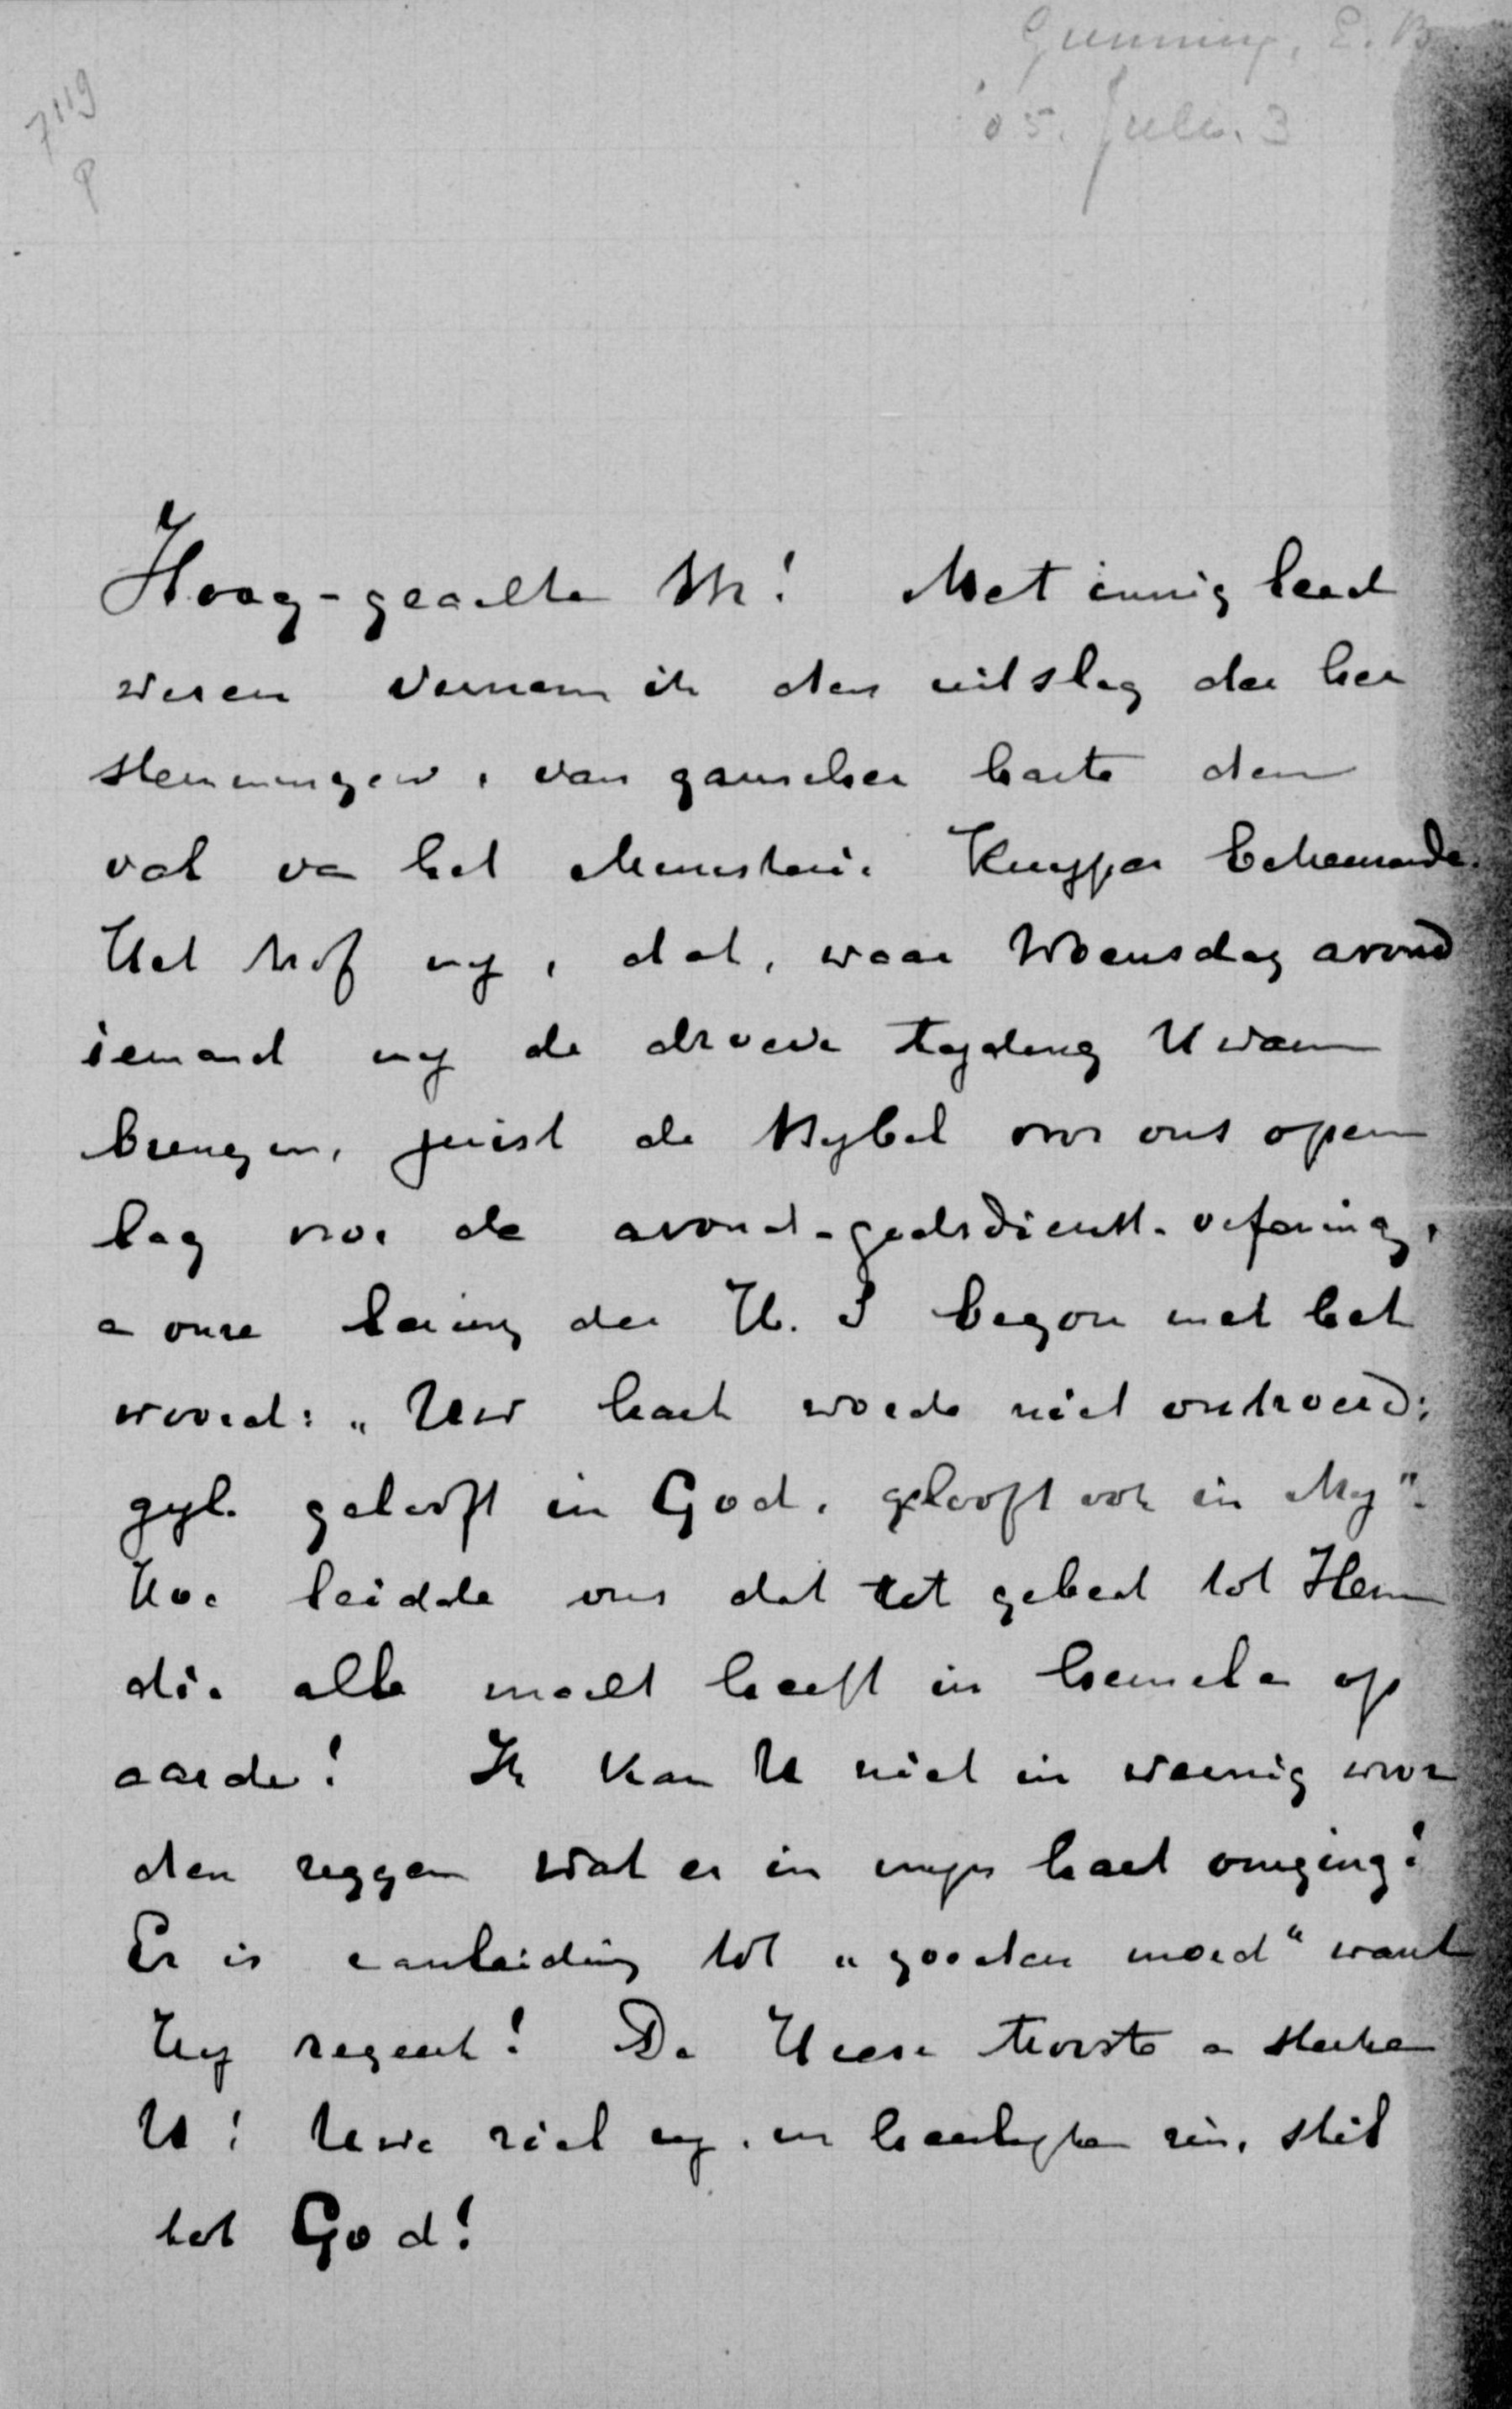 Gunning, E. B.
'05. Juli. 3
7119
P
Hoog-geachte Hr! Met innig leed
wezen vernam ik den uitslag der her
stemmingen, van ganscher harte den
val va het Ministerie Kuyper betreurende.
Het trof my, dat, waar Woensdag avond
iemand my de droeve tyding kwam
brengen, juist de Bybel voor ons open
lag voor de avond-godsdienst-oefening,
onze lezing der H. S begon met het
woord: „Uw hart worde niet ontroerd:
gyl. gelooft in God, gelooft ook in My".
Hoe leidde ons dat tot gebed tot Hem
die alle macht heeft in hemel en op
aarde! Ik kan U niet in weinig woor
den zeggen wat er in myn hart omging!
Er is aanleiding tot „goeden moed" want
Hy regeert! De Heere trooste en sterke
U! Uwe ziel zy, in heerlyken zin, stil
tot God!